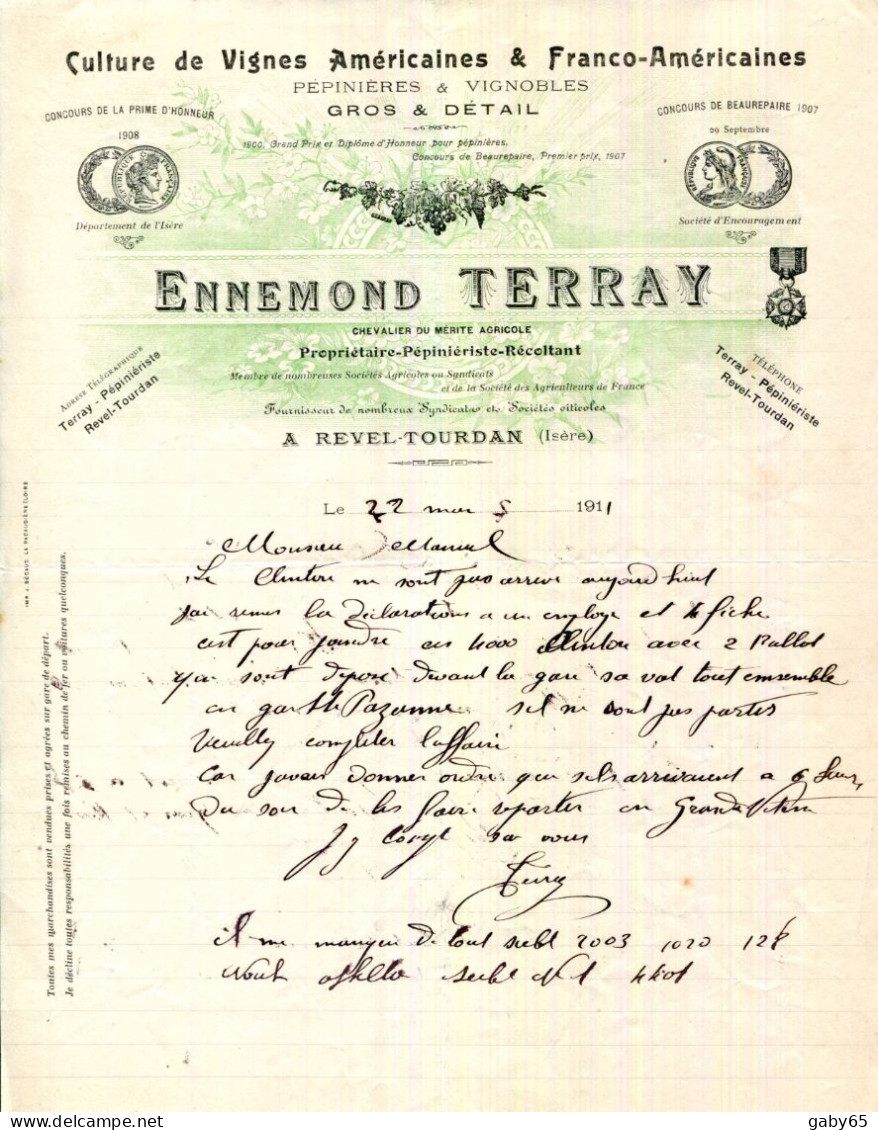 Culture de Vignes Américaines & Franco-Américaines
PÉPINIÈRES & VIGNOBLES
GROS & DÉTAIL
CONCOURS DE LA PRIME D'HONNEUR
1908
Département de l'Isère
1900, Grand Prix et Diplôme d'Honneur pour pépinières.
Concours de Beaurepaire, Premier prix, 1907
CONCOURS DE BEAUREPAIRE 1907
29 Septembre
RÉPUBLIQUE FRANÇAISE
Société d'Encouragement
ENNEMOND TERRAY
CHEVALIER DU MÉRITE AGRICOLE
Propriétaire-Pépiniériste-Récoltant
Membre de nombreuses Sociétés Agricoles ou Syndicats
et de la Société des Agriculteurs de France
Fournisseur de nombreux Syndicats et Sociétés viticoles
A REVEL-TOURDAN (Isère)
ADRESSE TÉLÉGRAPHIQUE
Terray - Pépiniériste
Revel-Tourdan
TÉLÉPHONE
Terray - Pépiniériste
Revel-Tourdan
Le 22 mars 1911
Monsieur
Le Clinton ne sont pas arrive aujourdhui
jai remis la déclarations a un employe et la fiche
cest pour joindre ces 4000 Clinton avec 2 Ballot
qui sont deposé devant la gare sa vat tout emsemble
en gare Ste Pazanne sil ne sont pas partes
Veuilly completer laffaire
Car javais donner ordre que sils arrivaient a 6 heures
Du soir de les faire reparter en Grande Vitesse
sa vous
Terray
il me manque de tout 2003 1020
No 1
Toutes mes marchandises sont vendues prises et agrées sur gare de départ.
Je décline toutes responsabilités une fois remises au chemin de fer ou voitures quelconques.
gaby65